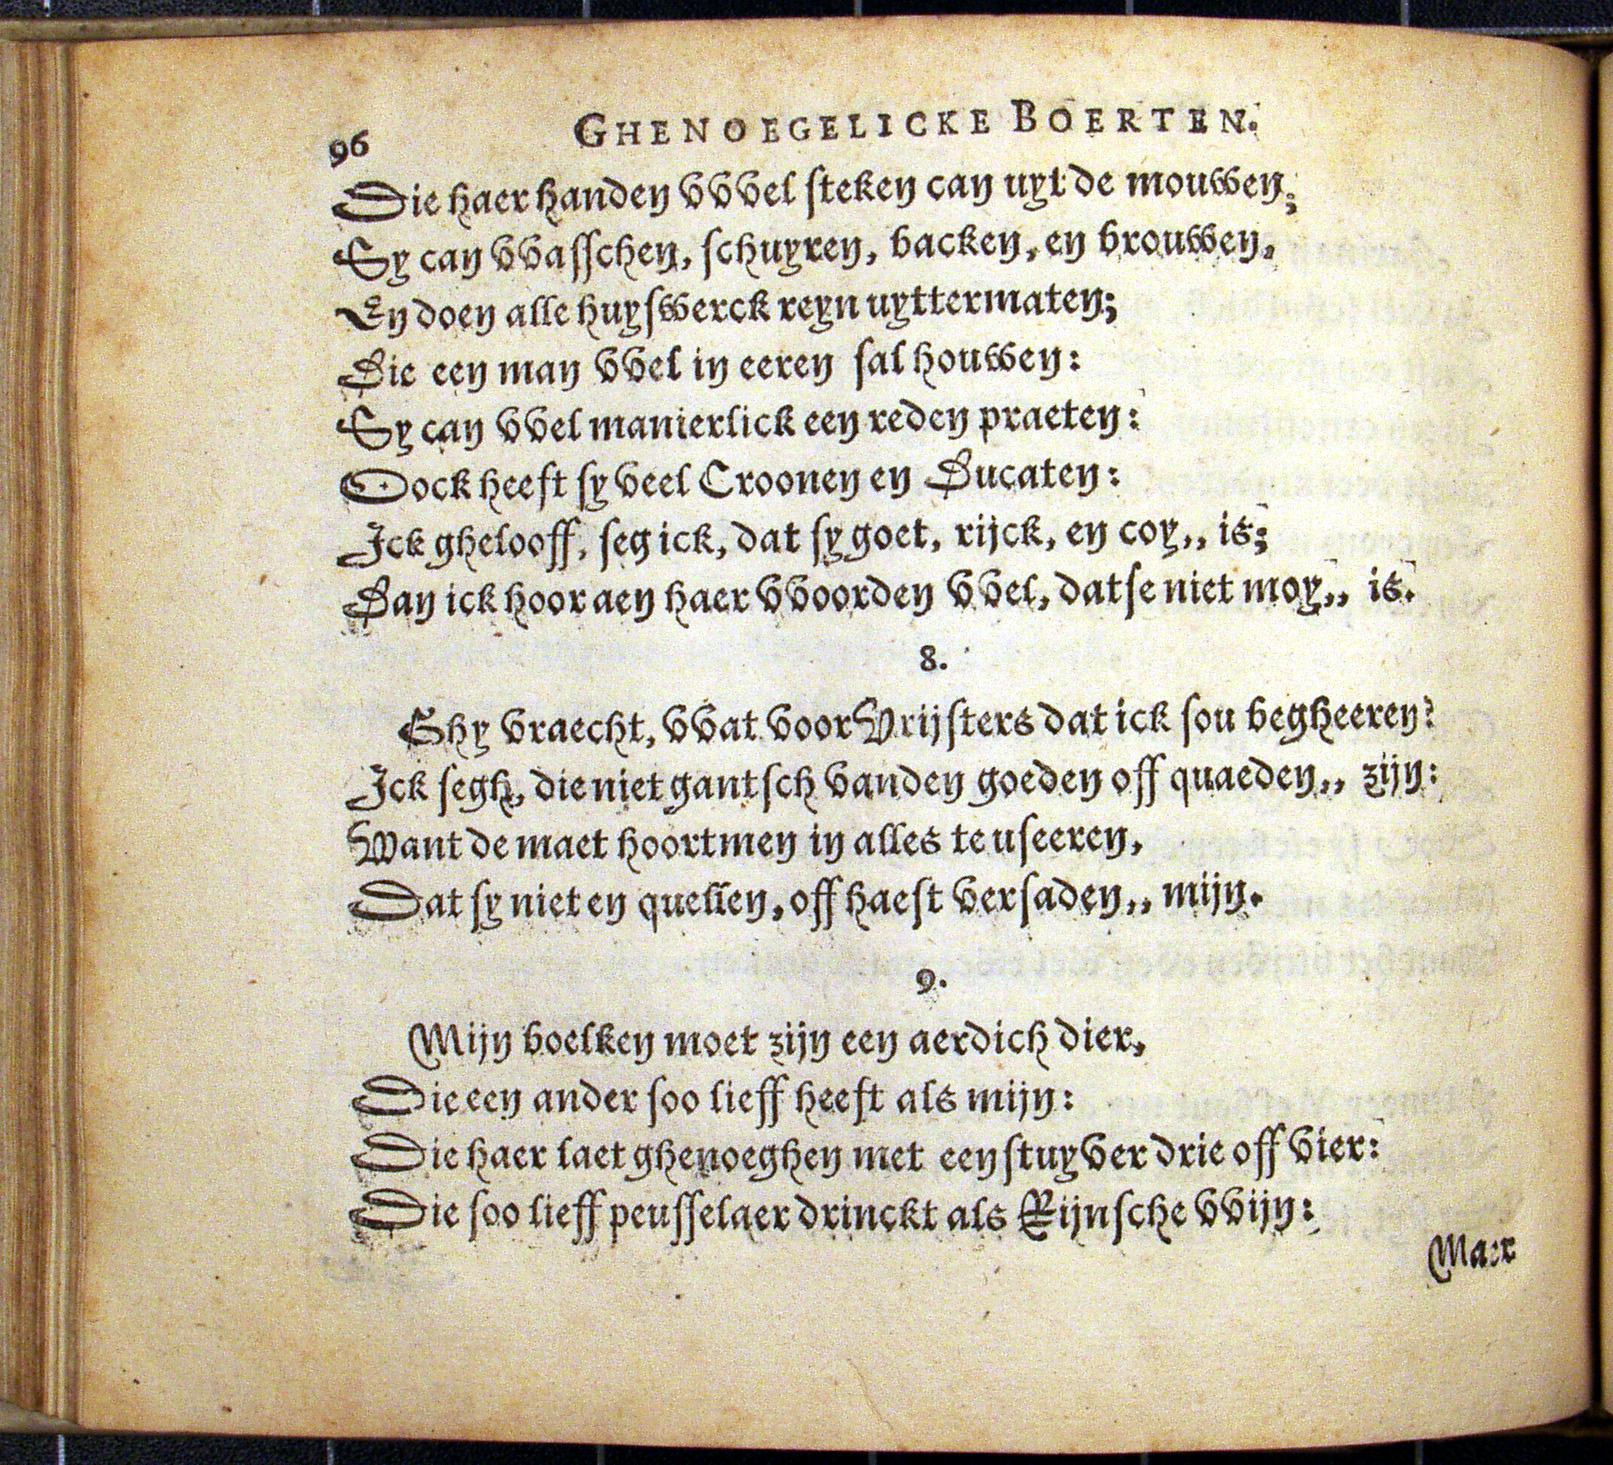 96 GHENOEGELICKE BOERTEN.
Die haer handen vvvel steken can uyt de mouwen;
Sy can vvasschen, schuyren, backen, en brouwen,
En doen alle huyswerck reyn uyttermaten;
Die een man vvel in eeren sal houwen:
Sy can vvel manierlick een reden praeten:
Oock heeft sy veel Croonen en Ducaten:
Ick ghelooff, seg ick, dat sy goet, rijck, en coy,, is;
Dan ick hoor aen haer vvoorden vvel, datse niet moy,, is.
8.
Ghy vraecht, vvat voor Vrijsters dat ick sou begheeren?
Ick segh, die niet gantsch vanden goeden off quaeden,, zijn:
Want de maet hoortmen in alles te useeren,
Dat sy niet en quellen, off haest versaden,, mijn.
9.
Mijn boelken moet zijn een aerdich dier,
Die een ander soo lieff heeft als mijn:
Die haer laet ghenoeghen met een stuyver drie off vier:
Die soo lieff peusselaer drinckt als Rijnsche vvijn:
Maer